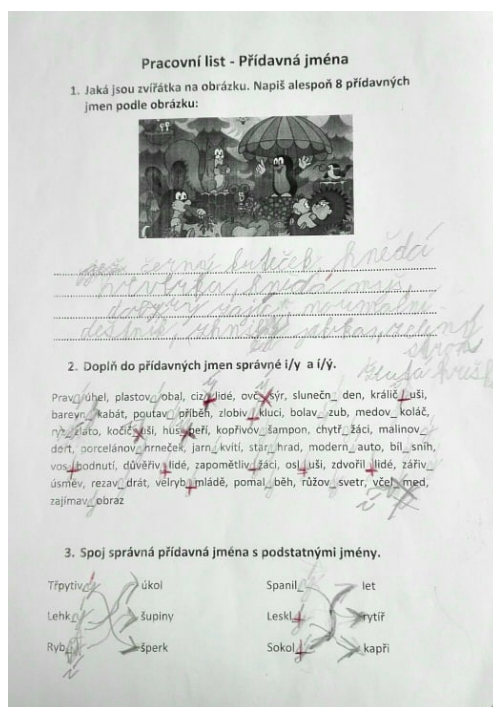 Pracovní list - Přídavná jména
1. Jaká jsou zvířátka na obrázku. Napiš alespoň 8 přídavných
jmen podle obrázku:
černý krteček, hnědá
veverka, hnedá
zajac
deštník, jabka, zelený
strom
hruška
2. Doplň do přídavných jmen správné i/y a í/ý.
Prav_ úhel, plastov_ obal, ciz_ lidé, ovč_ sýr, slunečn_ den, králič_ uši,
barevn_ kabát, poutav_ příběh, zlobiv_ kluci, bolav_ zub, medov_ koláč,
ryz_ zlato, kočič_ uši, hus_ peří, kopřivov_ šampon, chytř_ žáci, malinov_
dort, porcelánov_ hrneček, jarn_ kvítí, star_ hrad, modern_ auto, bíl_ sníh,
vos_ bodnutí, důvěřiv_ lidé, zapomětliv_ žáci, osl_ uši, zdvořil_ lidé, zářiv_
úsměv, rezav_ drát, velryb_ mládě, pomal_ běh, růžov_ svetr, včel_ med,
zajímav_ obraz
3. Spoj správná přídavná jména s podstatnými jmény.
Třpytiv_ úkol Spanil_ let
Lehk_ šupiny Leskl_ rytíř
Ryb_ šperk Sokol_ kapři